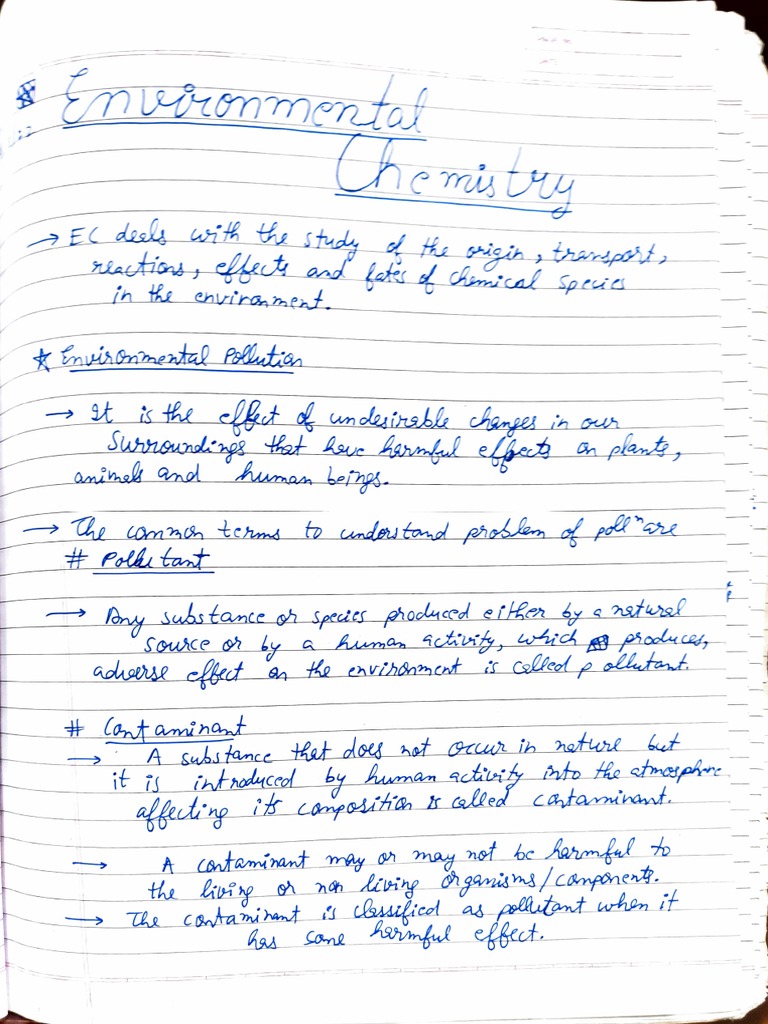 Environmental
Chemistry
→ EC deals with the study of the origin, transport,
reactions, effects and fates of chemical species
in the environment.
★ Environmental Pollution
→ It is the effect of undesirable changes in our
surroundings that have harmful effects on plants,
animals and human beings.
→ The common terms to understand problem of pollⁿ are
# Pollutant
→ Any substance or species produced either by a natural
source or by a human activity, which produces,
adverse effect on the environment is called pollutant.
# Contaminant
→ A substance that does not occur in nature but
it is introduced by human activity into the atmosphere
affecting its composition is called contaminant.
→ A contaminant may or may not be harmful to
the living or non living organisms/components.
→ The contaminant is classified as pollutant when it
has some harmful effect.